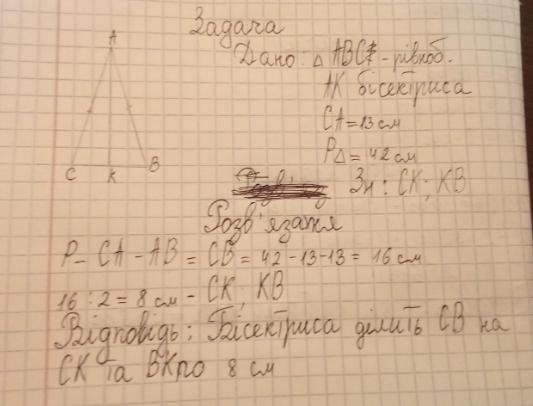 Задача
Дано: △ ABC - рівноб.
AK бісектриса
CA = 13 см
P△ = 42 см
Зн: CK; KB
A
C K B
Розв'язання
P - CA - AB = CB = 42 - 13 - 13 = 16 см
16 : 2 = 8 см - CK; KB
Відповідь: Бісектриса ділить CB на
CK та BK по 8 см